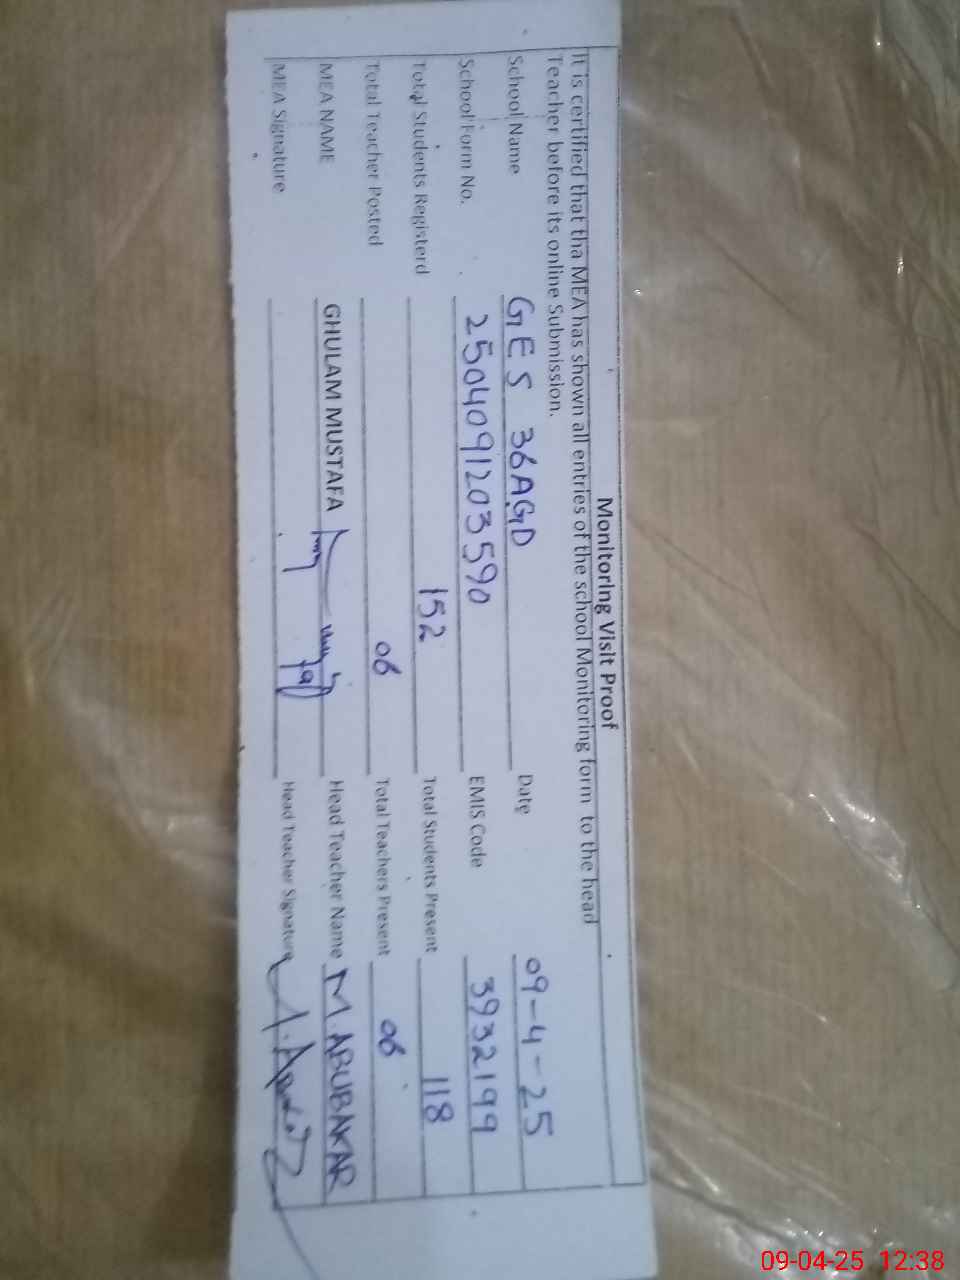 Monitoring Visit Proof
It is certified that tha MEA has shown all entries of the school Monitoring form to the head
Teacher before its online Submission.
School Name GES 36AGD Date 09-4-25
School Form No. 2504091203590 EMIS Code 3932199
Total Students Registerd 152 Total Students Present 118
Total Teacher Posted 06 Total Teachers Present 06
MEA NAME GHULAM MUSTAFA Head Teacher Name M.ABUBAKAR
MEA Signature Head Teacher Signature
09-04-25 12:38